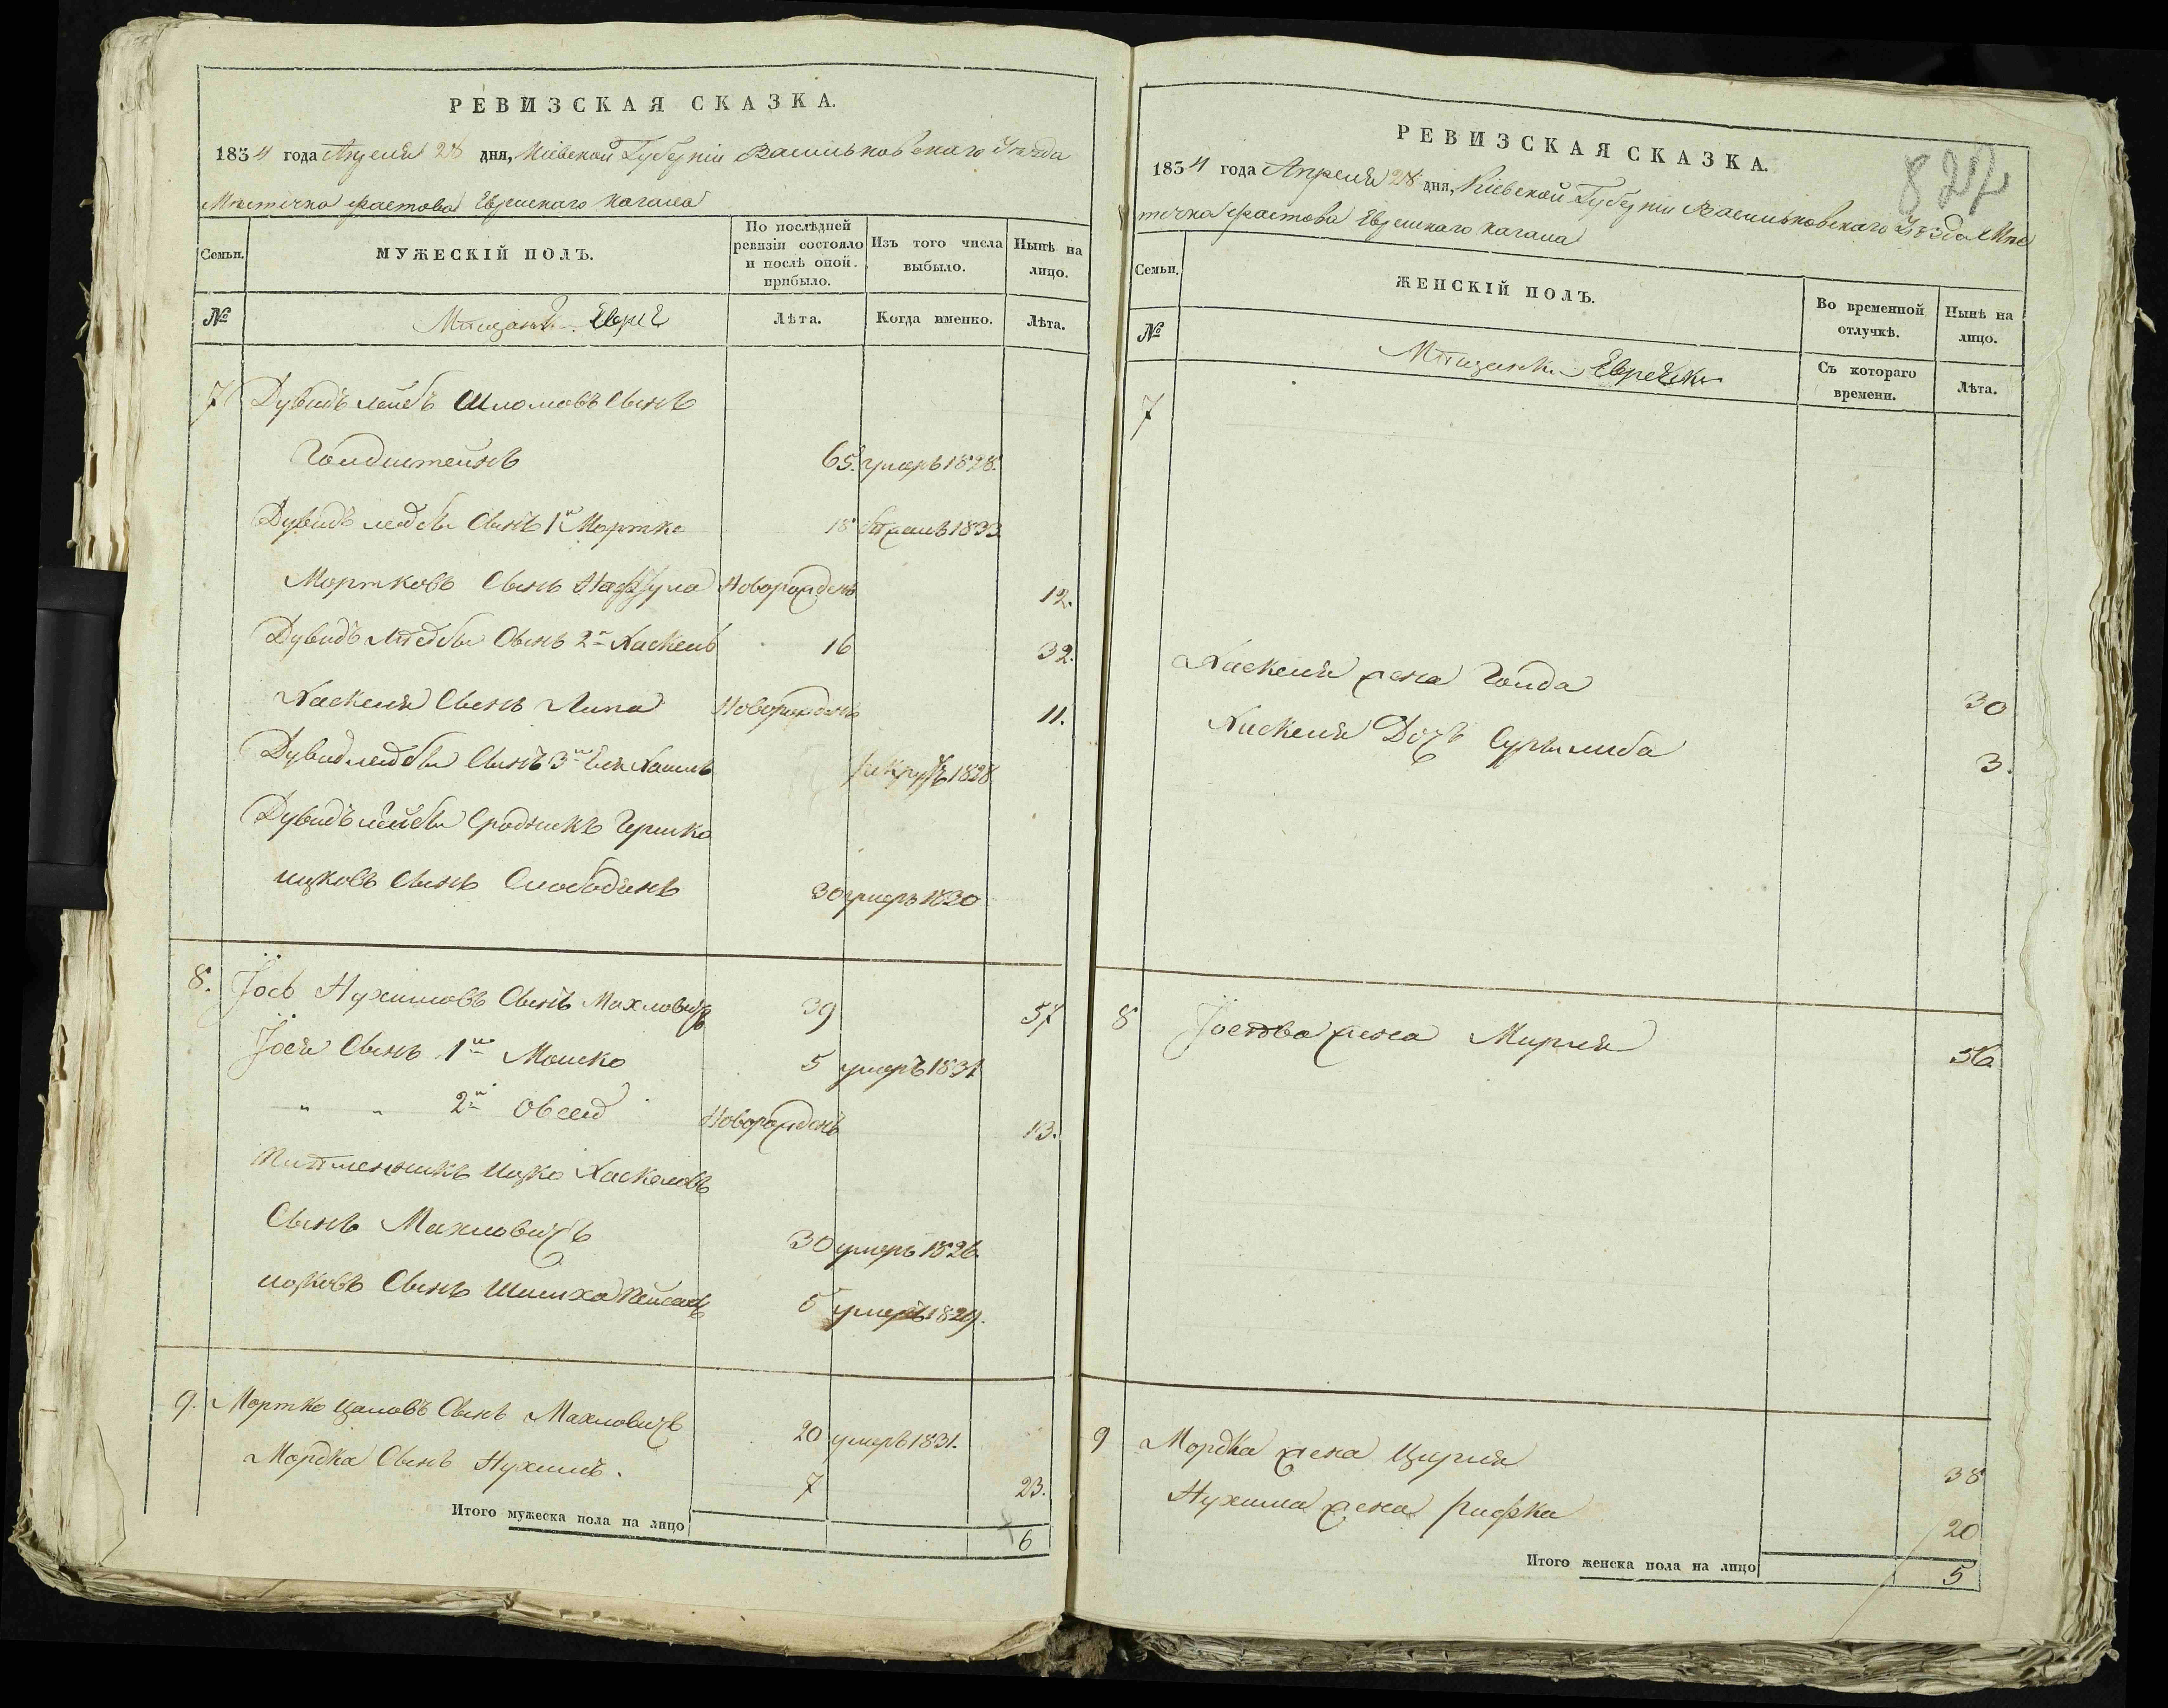 РЕВИЗСКАЯ СКАЗКА.
1834 года Апреля 28 дня, Кіевской Губерніи Васильковскаго Уезда
Местечка Фастова Еврейскаго Кагала
Семьи.
МУЖЕСКІЙ ПОЛЪ.
По послѣдней ревизіи состояло и послѣ оной прибыло.
Изъ того числа выбыло.
Нынѣ на лицо.
№
Мещане Евреи
Лѣта.
Когда именно.
Лѣта.
7 Дувидъ Лейбъ Шломовъ Сынъ
Голдштейнъ 65. умеръ 1828.
Дувидъ Лейбы Сынъ 1й Мортко 18 1833
Мортковъ Сынъ Нафтула Новорожденъ 12.
Дувидъ Лейбы Сынъ 2й Хаскель 16 32.
Хаскеля Сынъ Липа Новорожденъ 11.
Дувид Лейбы Сынъ 3й рекрутъ 1828
Дувидъ Лейбы Сродникъ Гершко
Ицковъ Сынъ Слободянъ 30 умеръ 1830
8. Іось Нухимовъ Сынъ Махловичъ 39 57
Іося Сынъ 1й Мошко 5 умеръ 1831
" " 2й Овсей Новорожденъ 13.
Племенникъ Ицко Хаскелевъ
Сынъ Махловичъ 30 умеръ 1826.
Ицковъ Сынъ 5 умеръ 1829.
9. Мортко Цаловъ Сынъ Махловичъ 20 умеръ 1831.
Мордка Сынъ Нухимъ. 7 23.
Итого мужеска пола на лицо 6
РЕВИЗСКАЯ СКАЗКА.
827
1834 года Апреля 28 дня, Кіевской Губерніи Васильковскаго Уезда Мес
течка Фастова Еврейскаго Кагала
Семьи.
ЖЕНСКІЙ ПОЛЪ.
Во временной отлучкѣ.
Нынѣ на лицо.
№
Мещанки Еврейки
Съ котораго времени.
Лѣта.
7
Хаскеля жена Голда 30
Хаскеля Дочь Суры либа 3.
8 Іосева жена Мирля 56
9 Мордка жена Цирля 38
Нухима жена Рифка 20
Итого женска пола на лицо 5